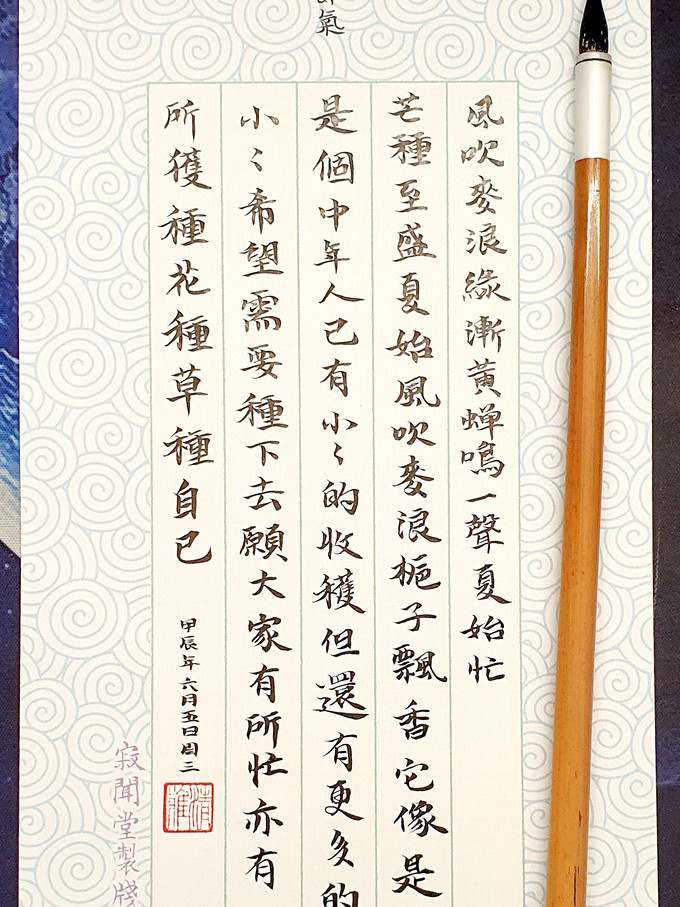 氣
風吹麥浪緣漸黃蟬鳴一聲夏始忙
芒種至盛夏始風吹麥浪梔子飄香它像是
是個中年人已有小〻的收穫但還有更多的
小〻希望需要種下去願大家有所忙亦有
所獲種花種草種自己
甲辰年六月五日周三
清雅
寂聞堂製牋